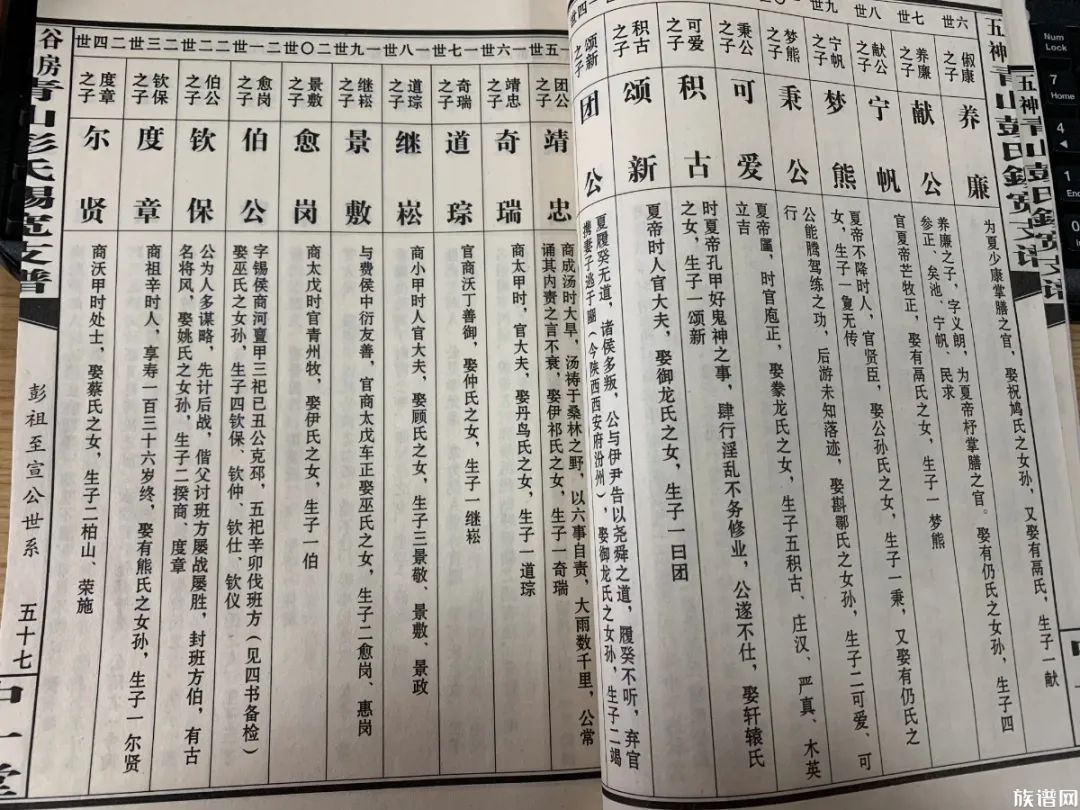 五神
青山彭氏
六世
俶康之子
养廉
为夏少康掌膳之官，娶祝鸠氏之女孙，又娶有鬲氏，生子一献
七世
养廉之子
献公
养廉之子，字义朗，为夏帝杼掌膳之官。娶有仍氏之女孙，生子四
参正、矣池、宁帆、民求
八世
献公之子
宁帆
官夏帝芒牧正，娶有鬲氏之女，生子一梦熊
九世
宁帆之子
梦熊
夏帝不降时人，官贤臣，娶公孙氏之女，生子一秉，又娶有仍氏之
女，生子一敻无传
梦熊之子
秉公
公能腾驾练之功，后游未知落迹，娶斟鄩氏之女孙，生子二可爱、可
行
秉公之子
可爱
夏帝廑，时官庖正，娶豢龙氏之女，生子五积古、庄汉、严真、木英
立吉
可爱之子
积古
时夏帝孔甲好鬼神之事，肆行淫乱不务修业，公遂不仕，娶轩辕氏
之女，生子一颂新
积古之子
颂新
夏帝时人官大夫，娶御龙氏之女，生子一曰团
一四世
颂新之子
团公
夏履癸无道，诸侯多叛，公与伊尹告以尧舜之道，履癸不听，弃官
携妻子逃于豳（今陕西西安府汾州），娶御龙氏之女孙，生子二竭
一五世
团公之子
靖忠
商成汤时大旱，汤祷于桑林之野，以六事自责，大雨数千里，公常
诵其内责之言不衰，娶伊祁氏之女，生子一奇瑞
一六世
靖忠之子
奇瑞
商太甲时，官大夫，娶丹鸟氏之女，生子一道琮
一七世
奇瑞之子
道琮
官商沃丁善御，娶仲氏之女，生子一继崧
一八世
道琮之子
继崧
商小甲时人官大夫，娶顾氏之女，生子三景敬、景敷、景政
一九世
继崧之子
景敷
与费侯中衍友善，官商太戊车正娶巫氏之女，生子二愈岗、惠岗
二〇世
景敷之子
愈岗
商太戊时官青州牧，娶伊氏之女，生子一伯
二一世
愈岗之子
伯公
字锡侯商河亶甲三祀已丑公克邳，五祀辛卯伐班方（见四书备检）
娶巫氏之女孙，生子四钦保、钦仲、钦仕、钦仪
二二世
伯公之子
钦保
公为人多谋略，先计后战，偕父讨班方屡战屡胜，封班方伯，有古
名将风，娶姚氏之女孙，生子二揆商、度章
二三世
钦保之子
度章
商祖辛时人，享寿一百三十六岁终，娶有熊氏之女孙，生子一尔贤
二四世
度章之子
尔贤
商沃甲时处士，娶蔡氏之女，生子二柏山、荣施
谷房青山彭氏锡宽支谱
彭祖至宣公世系
五十七
族谱网
Num Lock
7
Home
4
1
End
0